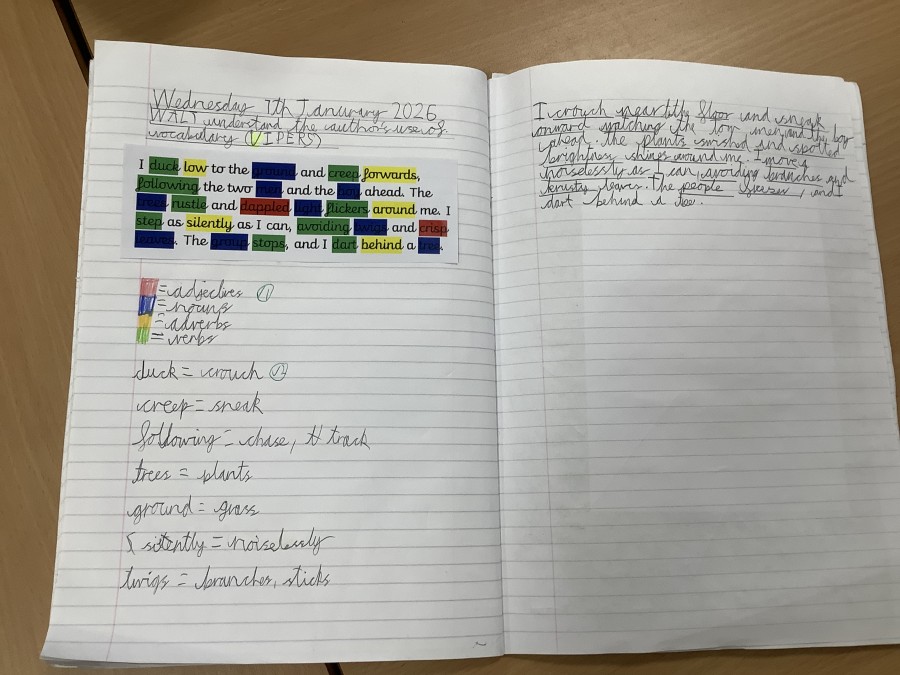 Wednesday 7th Janurary 2026
WALT understand the authors use of
vocabulary (VIPERS)
I duck low to the ground and creep forwards,
following the two men and the boy ahead. The
trees rustle and dappled light flickers around me. I
step as silently as I can, avoiding twigs and crisp
leaves. The group stops, and I dart behind a tree.
= adjectives
= nouns
= adverbs
= verbs
duck = crouch
creep = sneak
following = chase, track
trees = plants
ground = grass
silently = noiselessly
twigs = branches, sticks
I crouch floor and sneak
onward watching the tow men and the boy
ahead. the plants swished and spotted
brightness shines around me. I move
noiselessly as I can avoiding branches and
leaves. The people , and I
dart behind a tee.